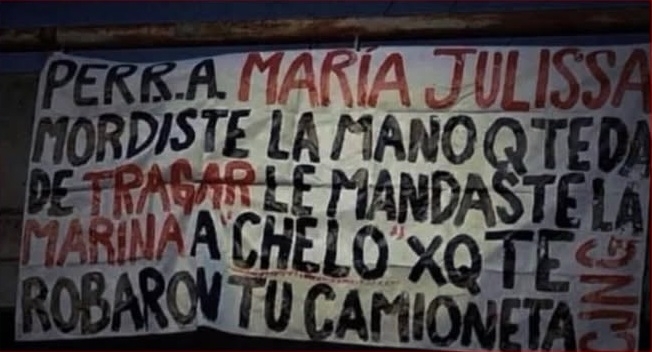 PERR.A. MARÍA JULISSA
MORDISTE LA MANO Q TE DA
DE TRAGAR LE MANDASTE LA
MARINA A "CHELO" XQ TE
ROBARON TU CAMIONETA
CJNG